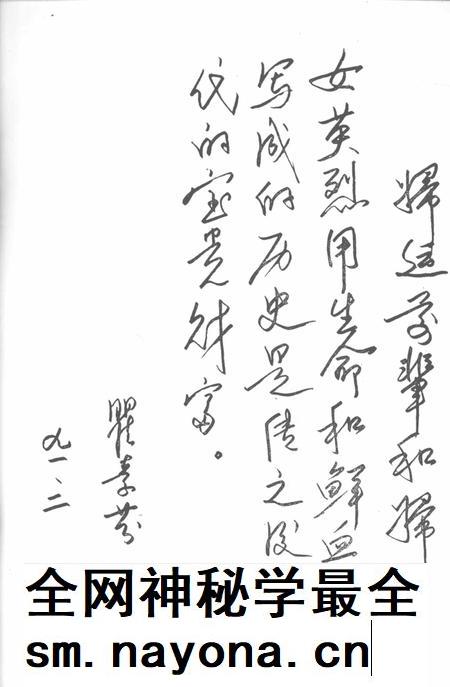 婦运前辈和婦
女英烈用生命和鲜血
写成的历史是传之後
代的宝贵财富。
瞿素芬
九一、二
全网神秘学最全
sm.nayona.cn